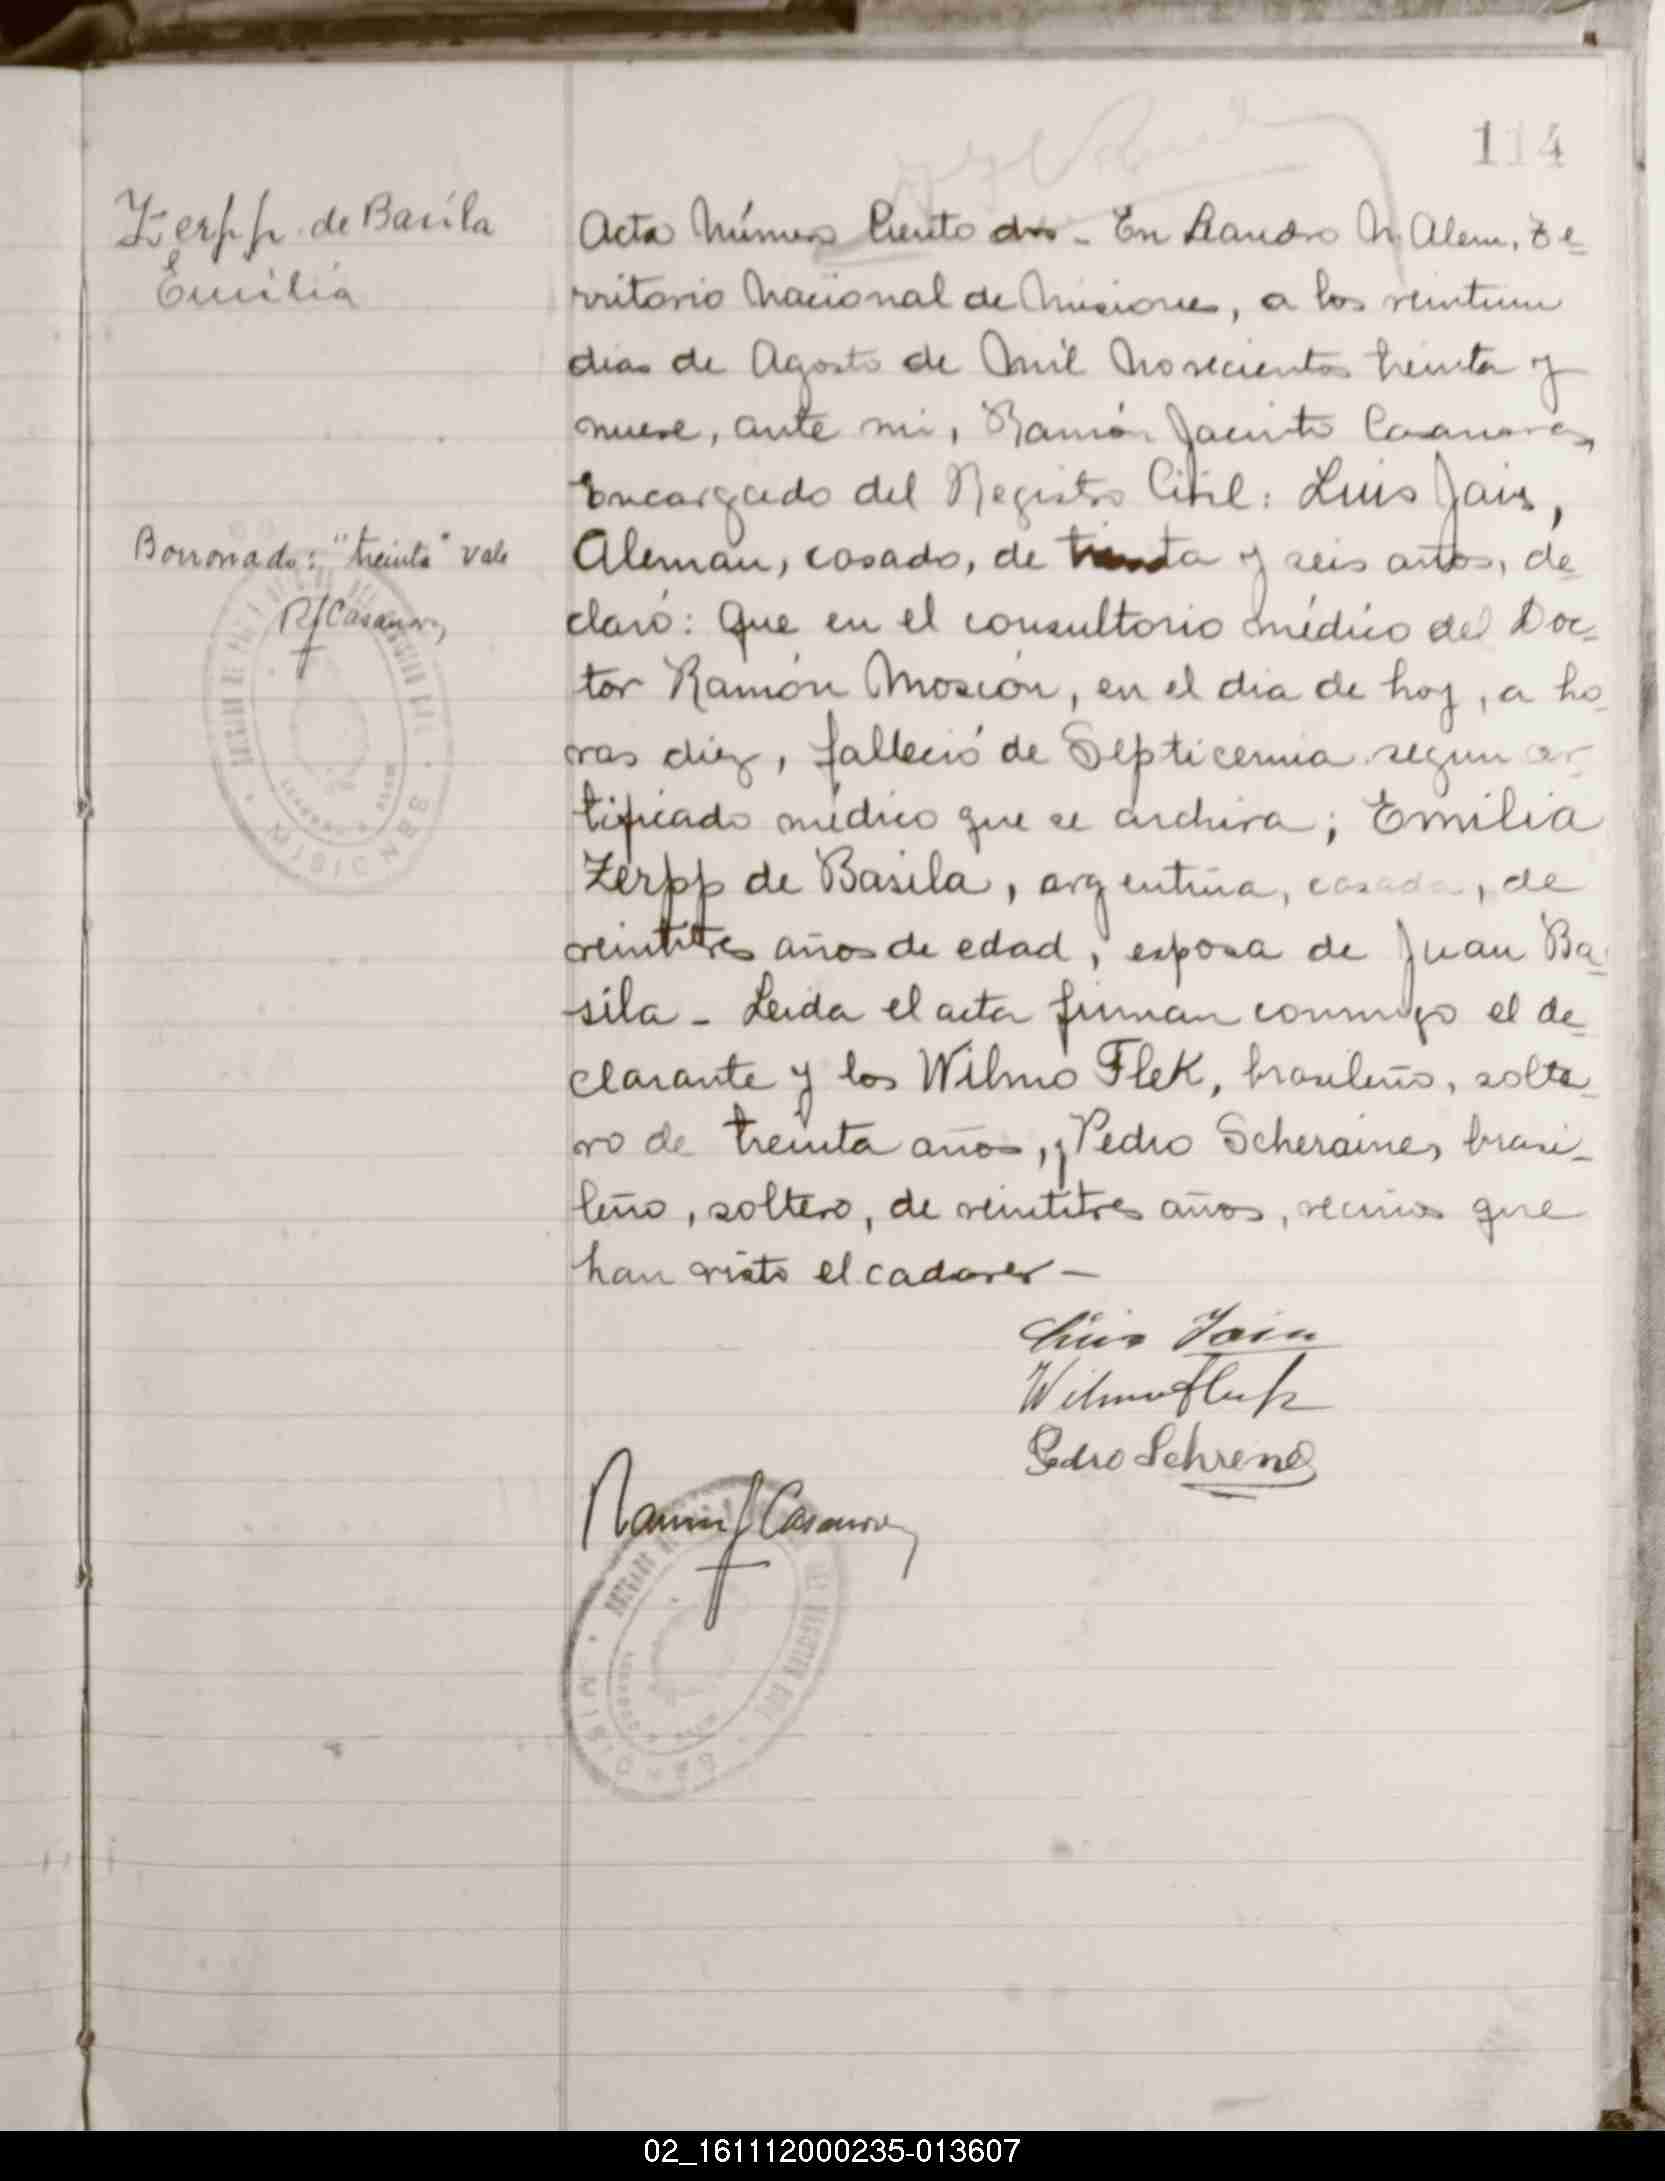 114
Zerpp de Basila
Emilia
Acta Número Ciento dos - En Leandro N. Alem, Te-
rritorio Nacional de Misiones, a los veintiun
dias de Agosto de Mil Novecientos treinta y
nueve, ante mi, Ramón Jacinto Casanova,
Encargado del Registro Civil: Luis Jain,
Aleman, casado, de treinta y seis años, de-
claró: Que en el consultorio médico del Doc-
tor Ramón Moscón, en el dia de hoy, a ho-
ras diez, falleció de Septicemia segun cer-
tificado médico que se archiva; Emilia
Zerpp de Basila, argentina, casada, de
veintitres años de edad, esposa de Juan Ba-
sila - Leida el acta firman conmigo el de-
clarante y los Wilmo Flek, brasileño, solte-
ro de treinta años, y Pedro Scheraine, brasi-
leño, soltero, de veintitres años, vecinos que
han visto el cadaver -
Borronado: "treinta" vale
RJCasanova
Luis Jain
Wilmo Flek
Pedro Schrene
Ramón J Casanova
02_161112000235-013607